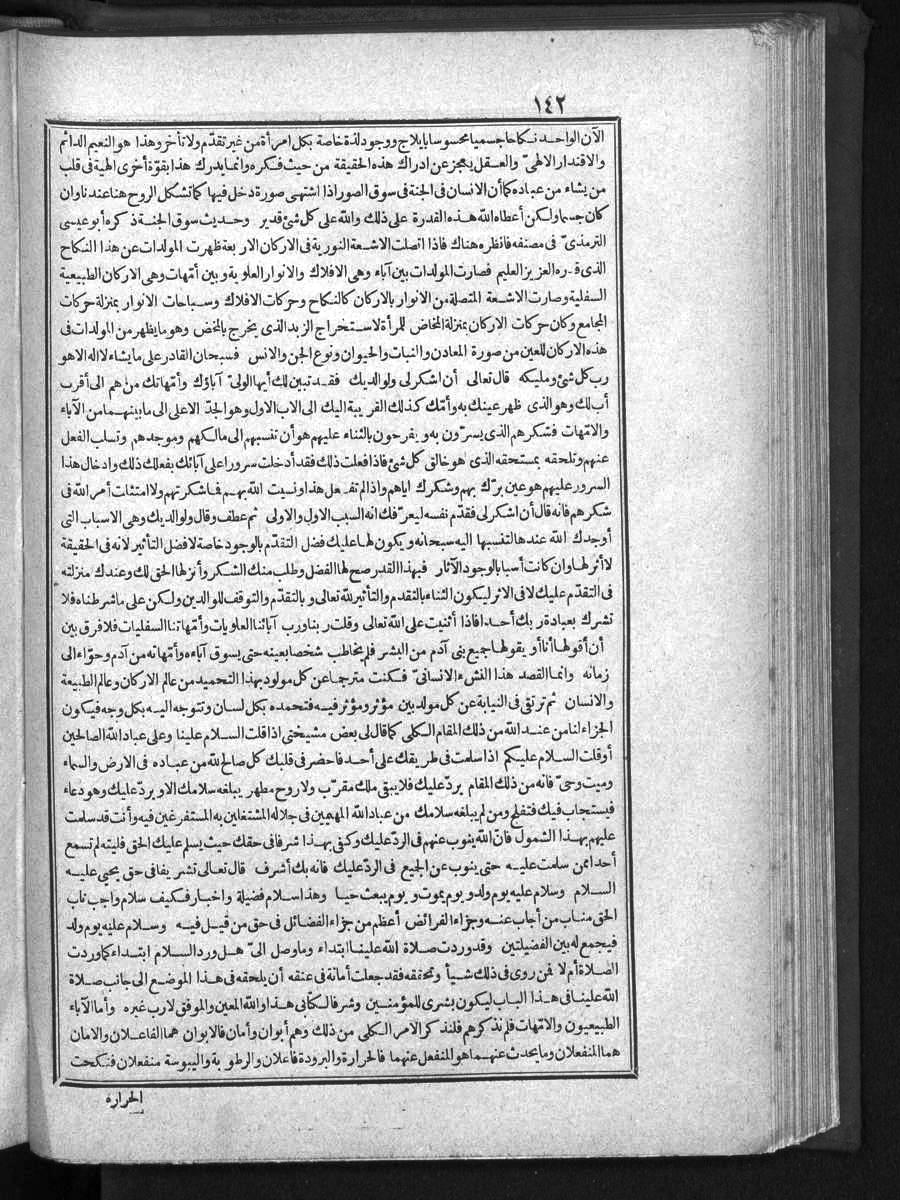 ١٤٢
الآن الواحد نكاحا جسميا محسوسا بايلاج ووجود لذة خاصة بكل امرأة من غير تقدّم ولا تأخر وهذا هو النعيم الدائم
والاقتدار الالهىّ والعقل يعجز عن ادراك هذه الحقيقة من حيث فكره وانما يدرك هذا بقوّة أخرى الهية فى قلب
من يشاء من عباده كما أن الانسان فى الجنة فى سوق الصور اذا اشتهى صورة دخل فيها كما تشكل الروح هنا عندنا وان
كان جسما ولكن أعطاه الله هذه القدرة على ذلك والله على كل شئ قدير وحديث سوق الجنة ذكره أبو عيسى
الترمذىّ فى مصنفه فانظره هناك فاذا اتصلت الاشعة النورية فى الاركان الاربعة ظهرت المولدات عن هذا النكاح
الذى قدره العزيز العليم فصارت المولدات بين آباء وهى الافلاك والانوار العلوية وبين أمّهات وهى الاركان الطبيعية
السفلية وصارت الاشعة المتصلة من الانوار بالاركان كالنكاح وحركات الافلاك وسباحات الانوار بمنزلة حركات
المجامع وكان حركات الاركان بمنزلة المخاض للمرأة لاستخراج الزبد الذى يخرج بالمخض وهو ما يظهر من المولدات فى
هذه الاركان للعين من صورة المعادن والنبات والحيوان ونوع الجن والانس فسبحان القادر على ما يشاء لا اله الا هو
رب كل شئ ومليكه قال تعالى أن اشكر لى ولوالديك فقد تبين لك أيها الولىّ آباؤك وأمّهاتك من هم الى أقرب
أب لك وهو الذى ظهر عينك به وأمّك كذلك القريبة اليك الى الاب الاول وهو الجدّ الاعلى الى ما بينهما من الآباء
والامّهات فشكرهم الذى يسرّون به ويفرحون بالثناء عليهم هو أن تنسبهم الى مالكهم وموجدهم وتسلب الفعل
عنهم وتلحقه بمستحقه الذى هو خالق كل شئ فاذا فعلت ذلك فقد أدخلت سرورا على آبائك بفعلك ذلك وادخال هذا
السرور عليهم هو عين برّك بهم وشكرك اياهم واذا لم تفعل هذا ونسيت الله بهم فما شكرتهم ولا امتثلت أمر الله فى
شكرهم فانه قال أن اشكر لى فقدّم نفسه ليعرّفك انه السبب الاول والاولى ثم عطف وقال ولوالديك وهى الاسباب التى
أوجدك الله عندها لتنسبها اليه سبحانه ويكون لها عليك فضل التقدّم بالوجود خاصة لا فضل التأثير لانه فى الحقيقة
لا أثر لها وان كانت أسبابا لوجود الآثار فبهذا القدر صح لها الفضل وطلب منك الشكر وأنزلها الحق لك وعندك منزلته
فى التقدّم عليك لا فى الاثر ليكون الثناء بالتقدم والتأثير لله تعالى وبالتقدّم والتوقف للوالدين ولكن على ما شرطناه فلا
تشرك بعبادة ربك أحدا فاذا أثنيت على الله تعالى وقلت ربنا ورب آبائنا العلويات وأمّهاتنا السفليات فلا فرق بين
أن أقولها أنا أو يقولها جميع بنى آدم من البشر فلم يخاطب شخصا بعينه حتى يسوق آباءه وأمّهاته من آدم وحوّاء الى
زمانه وانما القصد هذا النشء الانسانىّ فكنت مترجما عن كل مولود بهذا التحميد من عالم الاركان وعالم الطبيعة
والانسان ثم ترتقى فى النيابة عن كل مولد بين مؤثر ومؤثر فيه فتحمده بكل لسان وتتوجه اليه بكل وجه فيكون
الجزاء لنا من عند الله من ذلك المقام الكلى كما قال لى بعض مشيختى اذا قلت السلام علينا وعلى عباد الله الصالحين
أو قلت السلام عليكم اذا سلمت فى طريقك على أحد فاحضر فى قلبك كل صالح لله من عباده فى الارض والسماء
وميت وحىّ فانه من ذلك المقام يردّ عليك فلا يبقى ملك مقرّب ولا روح مطهر يبلغه سلامك الا ويردّ عليك وهو دعاء
فيستجاب فيك فتفلح ومن لم يبلغه سلامك من عباد الله المهيمين فى جلاله المشتغلين به المستفرغين فيه وأنت قد سلمت
عليهم بهذا الشمول فانّ الله ينوب عنهم فى الردّ عليك وكفى بهذا شرفا فى حقك حيث يسلم عليك الحق فليته لم تسمع
أحدا ممن سلمت عليه حتى ينوب عن الجميع فى الردّ عليك فانه بك أشرف قال تعالى تشريفا فى حق يحيى عليه
السلام وسلام عليه يوم ولد ويوم يموت ويوم يبعث حيا وهذا سلام فضيلة واخبار فكيف سلام واجب ناب
الحق مناب من أجاب عنه وجزاء الفرائض أعظم من جزاء الفضائل فى حق من قيل فيه وسلام عليه يوم ولد
فيجمع له بين الفضيلتين وقد وردت صلاة الله علينا ابتداء وما وصل الىّ هل ورد السلام ابتداء كما وردت
الصلاة أم لا فمن روى فى ذلك شيأ وتحققه فقد جعلت أمانة فى عنقه أن يلحقه فى هذا الموضع الى جانب صلاة
الله علينا فى هذا الباب ليكون بشرى للمؤمنين وشرفا لكتابى هذا والله المعين والموفق لا رب غيره وأما الآباء
الطبيعيون والامّهات فلم نذكرهم فلنذكر الامر الكلى من ذلك وهم أبوان وأمان فالابوان هما الفاعلان والامان
هما المنفعلان وما يحدث عنهما هو المنفعل عنهما فالحرارة والبرودة فاعلان والرطوبة واليبوسة منفعلان فنكحت
الحرارة